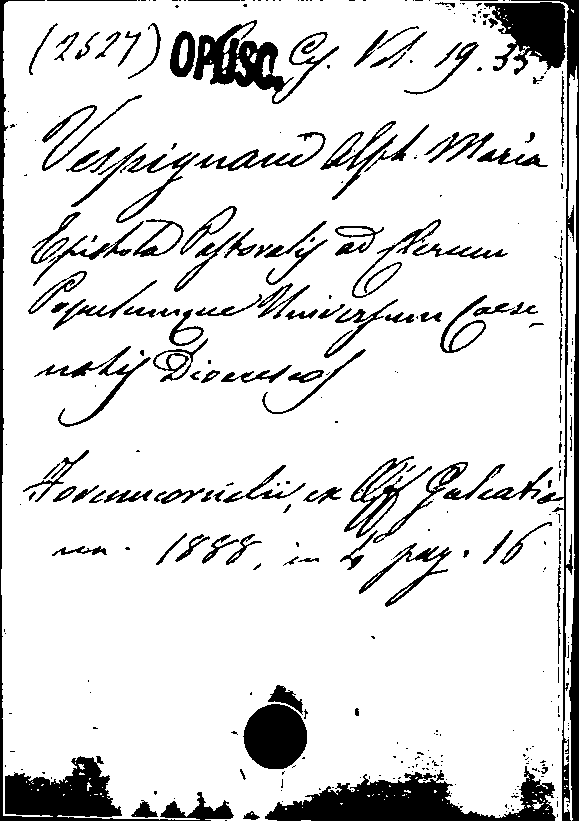 (2527) OPUSC. Cs. Vol. 19.33
Vespignani Alph. Maria
Epistola Pastoralis ad Clerum
Populumque Universum Caese-
natis Dioeceseos
Forocornelii, ex Off Galeatia
na. 1888, in 4° pag. 16